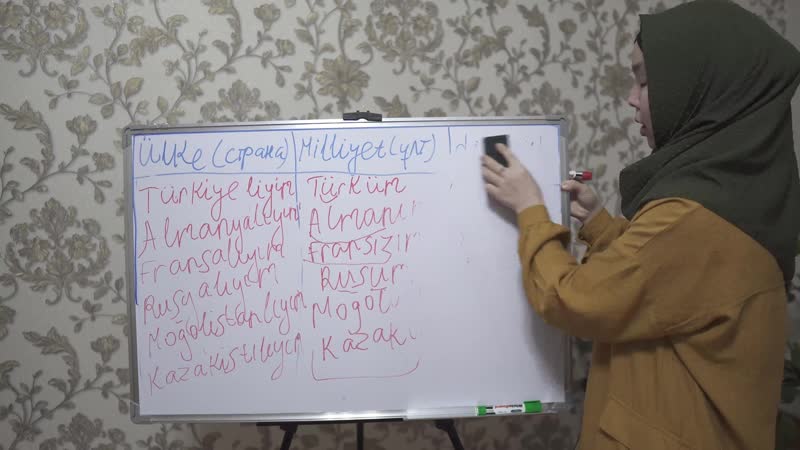 Ülke (страна) Milliyet (ұлт)
Türkiyeliyim Türküm
Almanyalıyım Almanı
Fransalıyım Fransızı
Rusyalıyım Rusu
Moğolistanlıyım Moğol
Kazakistlıyım Kazak